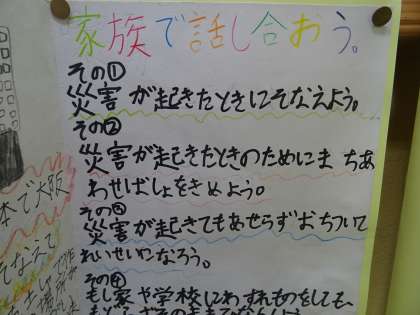 家族で話し合おう。
その①
災害が起きたときにそなえよう。
その②
災害が起きたときのためにまちあ
わせばしょをきめよう。
その③
災害が起きてもあせらずおちついて
れいせいになろう。
その④
もし家や学校にわすれものをしても、
本で大阪
そなえて